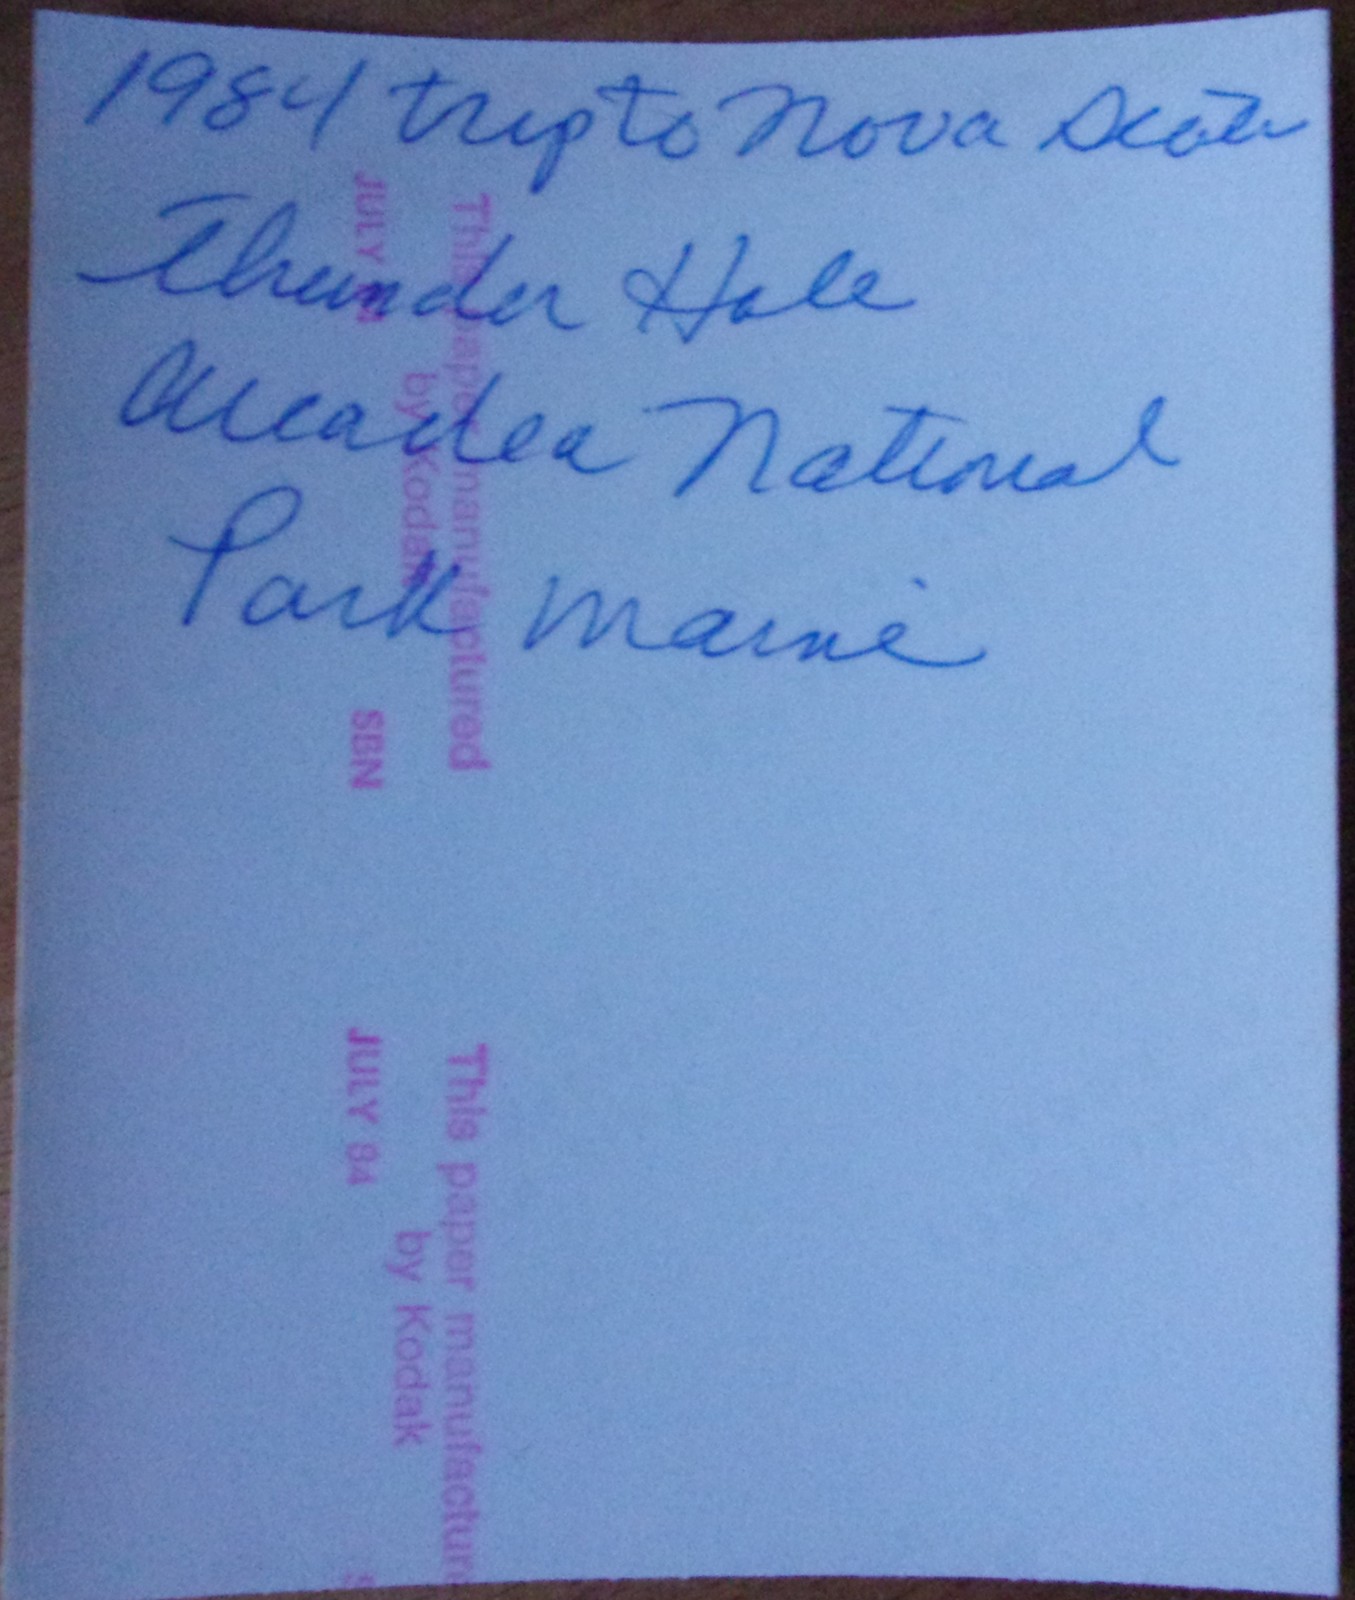 1984 trip to Nova Scotia
Thunder Hole
Arcadia National
Park Maine
This paper manufactured
by Kodak
JULY 84 SBN
This paper manufacture
by Kodak
JULY 84